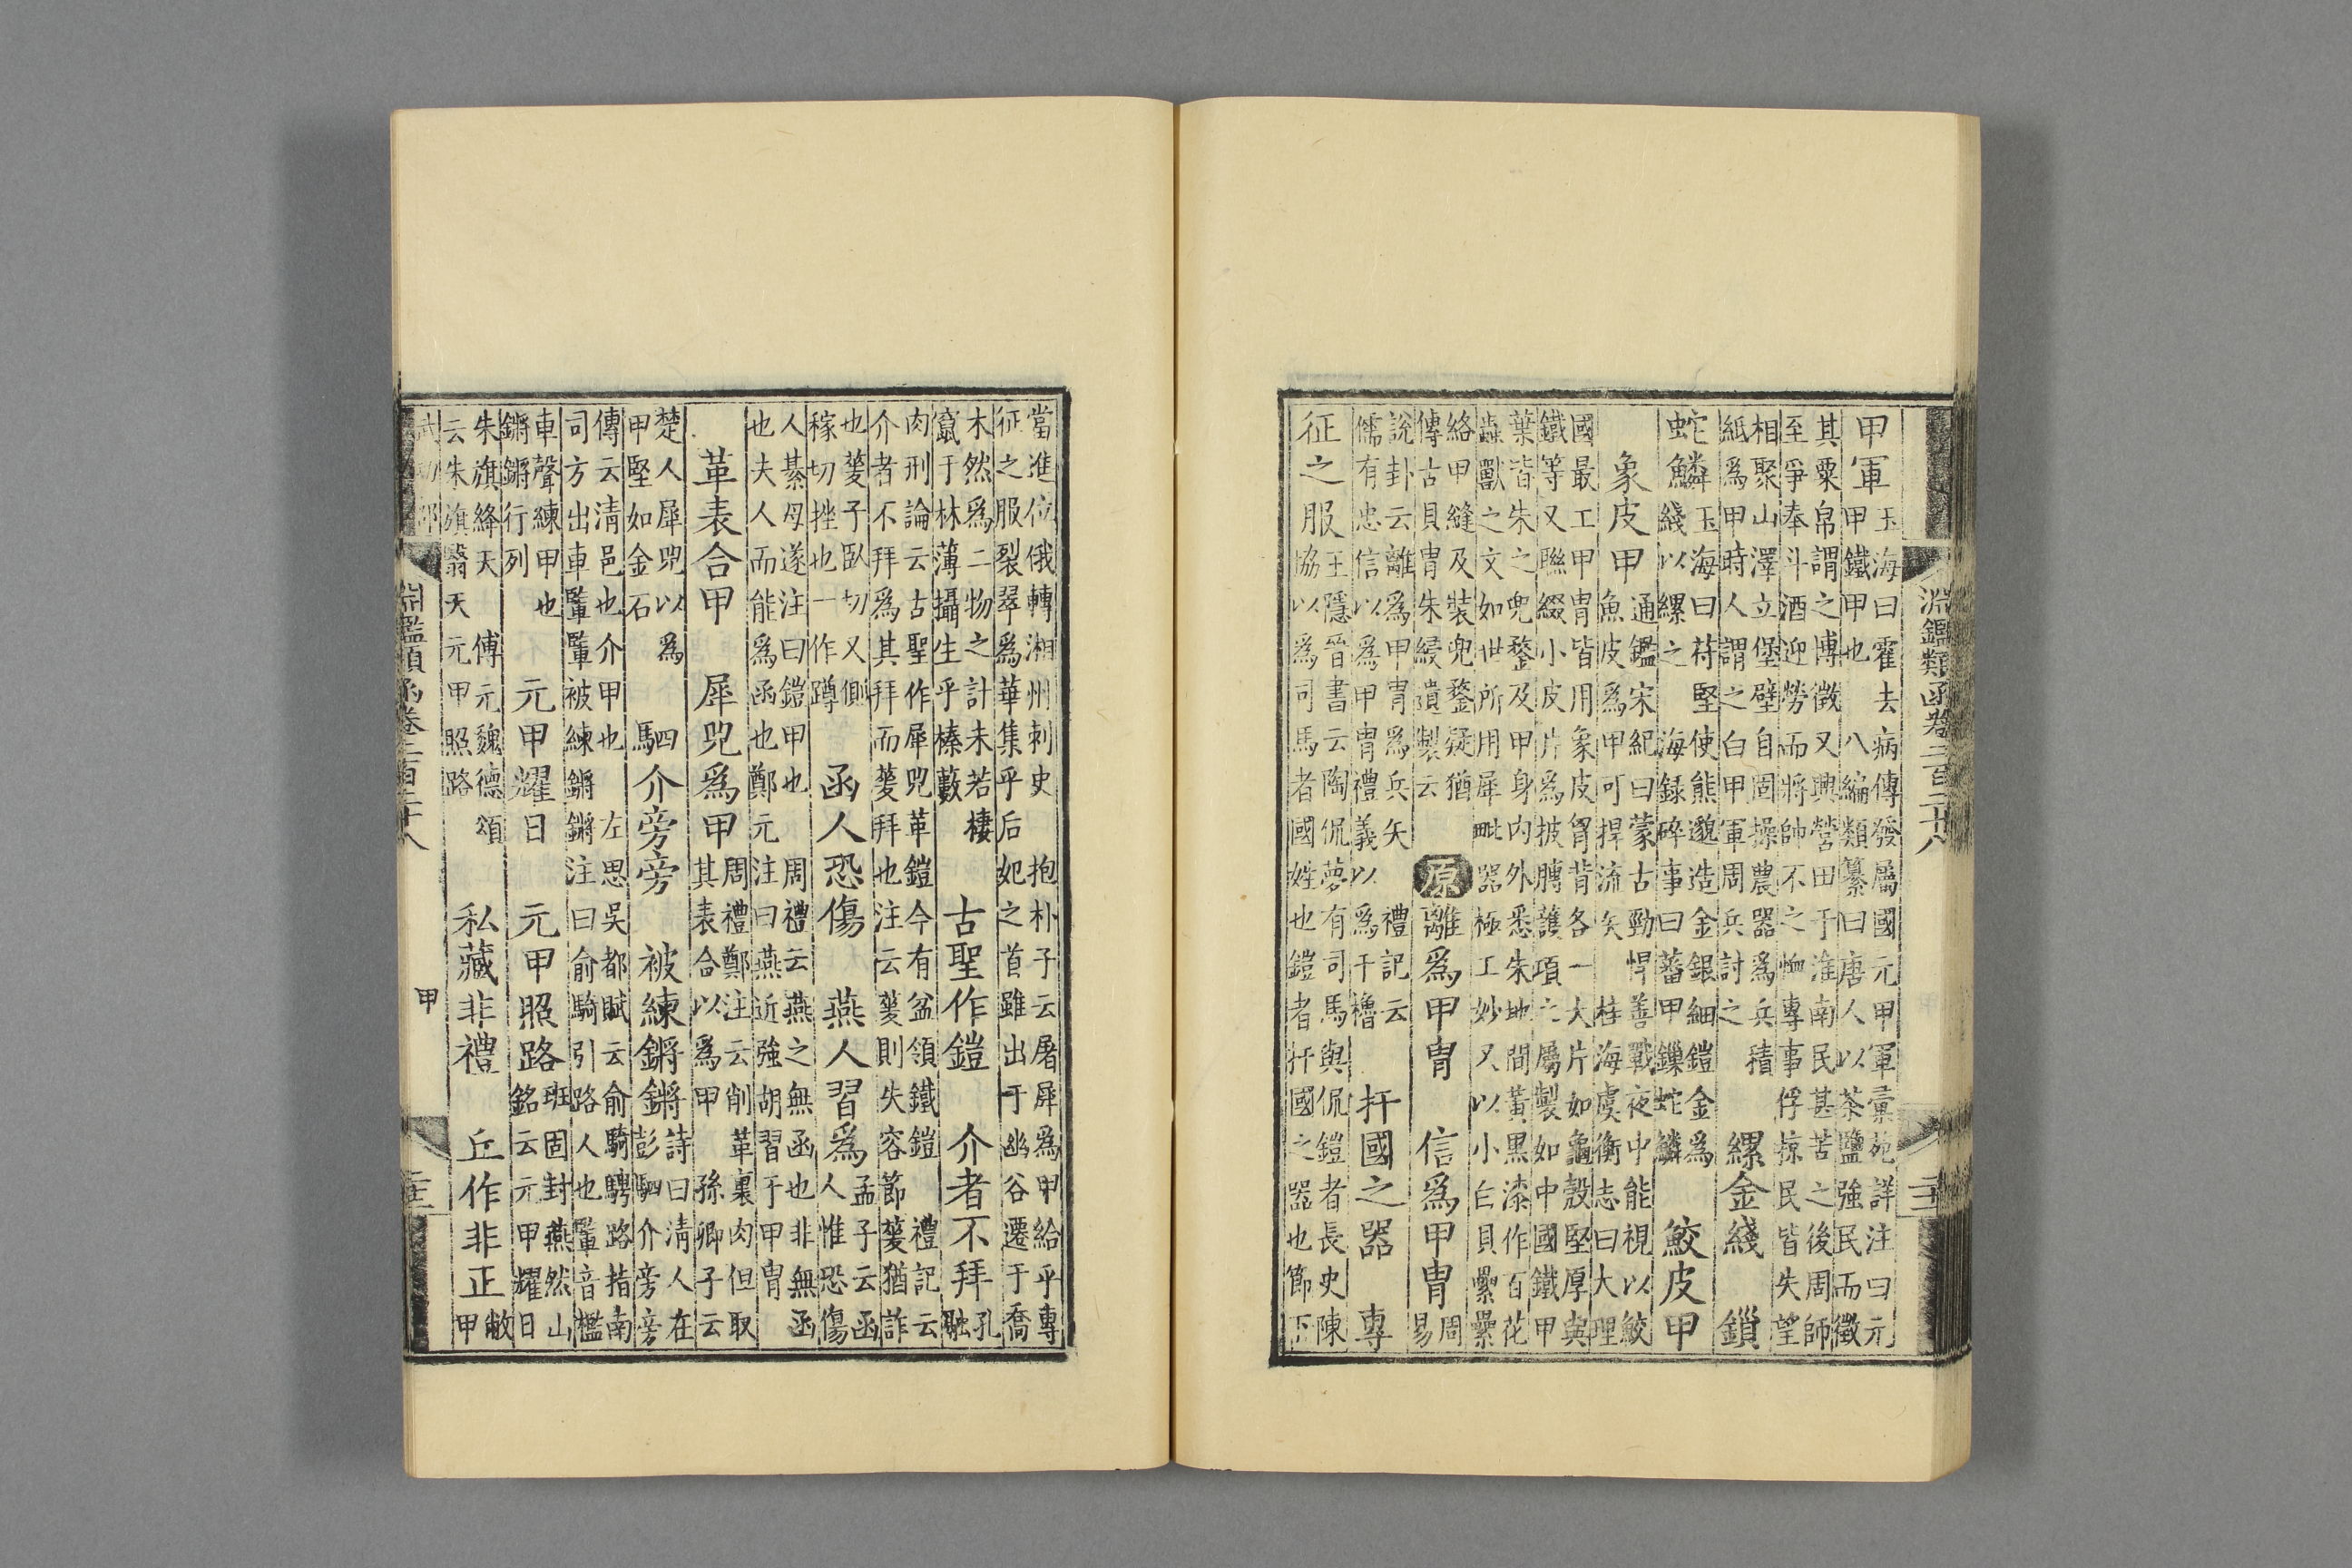 淵鑑類函卷二百二十八
甲軍
玉海曰霍去病傳發屬國元甲軍彙苑詳注曰元
甲鐵甲也 八編類纂曰唐人以茶鹽強民而徵
其粟帛謂之博徵又興營田于淮南民甚苦之後周師
至爭奉斗酒迎勞而將帥不之恤專事俘掠民皆失望
相聚山澤立堡壁自固操農器爲兵積
紙爲甲時人謂之白甲軍周兵討之
縲金綫 鎖
蛇鱗
玉海曰苻堅使熊邈造金銀細鎧金爲
綫以縲之 海録碎事曰蕃甲鏁蛇鱗
鮫皮甲
象皮甲
通鑑宋紀曰蒙古勁悍善戰夜中能視以鮫
魚皮爲甲可捍流矢 桂海虞衡志曰大理
國最工甲冑皆用象皮胷背各一大片如龜殼堅厚與
鐵等又聯綴小皮片爲披膊護項之屬製如中國鐵甲
葉皆朱之兜鍪及甲身內外悉朱地間黃黑漆作百花
蟲獸之文如世所用犀毗器極工妙又以小白貝纍纍
絡甲縫及裝兜鍪疑猶
傳古貝冑朱綬遺製云
原 離爲甲冑 信爲甲冑
周
易
說卦云離爲甲冑爲兵矢 禮記云
儒有忠信以爲甲冑禮義以爲干櫓
扞國之器 專
征之服
王隱晉書云陶侃夢有司馬與侃鎧者長史陳
協以爲司馬者國姓也鎧者扞國之器也節下
當進位俄轉湘州刺史 抱朴子云屠犀爲甲給乎專
征之服裂翠爲華集乎后妃之首雖出于幽谷遷于喬
木然爲二物之計未若棲
竄于林薄攝生乎榛藪
古聖作鎧 介者不拜
孔
融
肉刑論云古聖作犀兕革鎧今有盆領鐵鎧 禮記云
介者不拜爲其拜而蓌拜也注云蓌則失容節蓌猶詐
也蓌子臥切又側
稼切挫也一作蹲
函人恐傷 燕人習爲
孟子云函
人惟恐傷
人綦母遂注曰鎧甲也 周禮云燕之無函也非無函
也夫人而能爲函也鄭元注曰燕近強胡習于甲冑
革表合甲 犀兕爲甲
周禮鄭注云削革裏肉但取
其表合以爲甲 孫卿子云
楚人犀兕以爲
甲堅如金石
駟介旁旁 被練鏘鏘
詩曰清人在
彭駟介旁旁
傳云清邑也介甲也 左思吳都賦云俞騎騁路指南
司方出車䡺䡺被練鏘鏘注曰俞騎引路人也䡺音檻
車聲練甲也
鏘鏘行列
元甲耀日 元甲照路
班固封燕然山
銘云元甲耀日
朱旗絳天 傅元魏德頌
云朱旗翳天元甲照路
私藏非禮 丘作非正
敝
甲
武功部 淵鑑類函卷二百二十八 甲